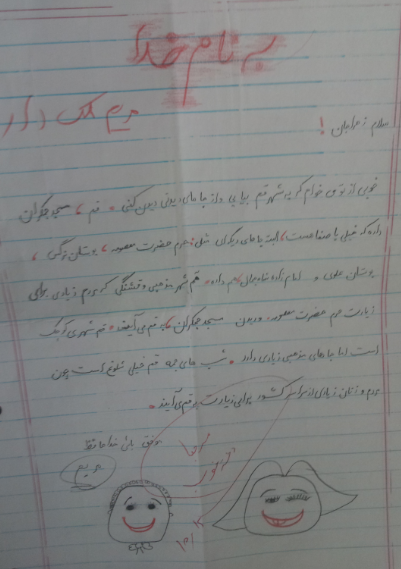 به نام خدا
سلام زهرا جان!
خوبی از تو می خوام که به شهر قم بیایی و از جاهای دیدنی دیدن کنی. قم، مسجد جمکران
دارد که خیلی با صفا است، البته جاهای دیگر ای مثل: حرم حضرت معصومه، بوستان نرگس،
بوستان علوی و امام زاده شاه جمال هم دارد. قم شهر مذهبی و قشنگی که مردم زیادی برای
زیارت حرم حضرت معصومه و دیدن مسجد جمکران به قم می آیند. قم شهری کوچک
است اما جاهای مذهبی زیادی دارد. شب های جمعه قم خیلی شلوغ است چون
مردم و زنان زیادی از سراسر کشور برای زیارت به قم می آیند.
موفق باشی خداحافظ
مریم